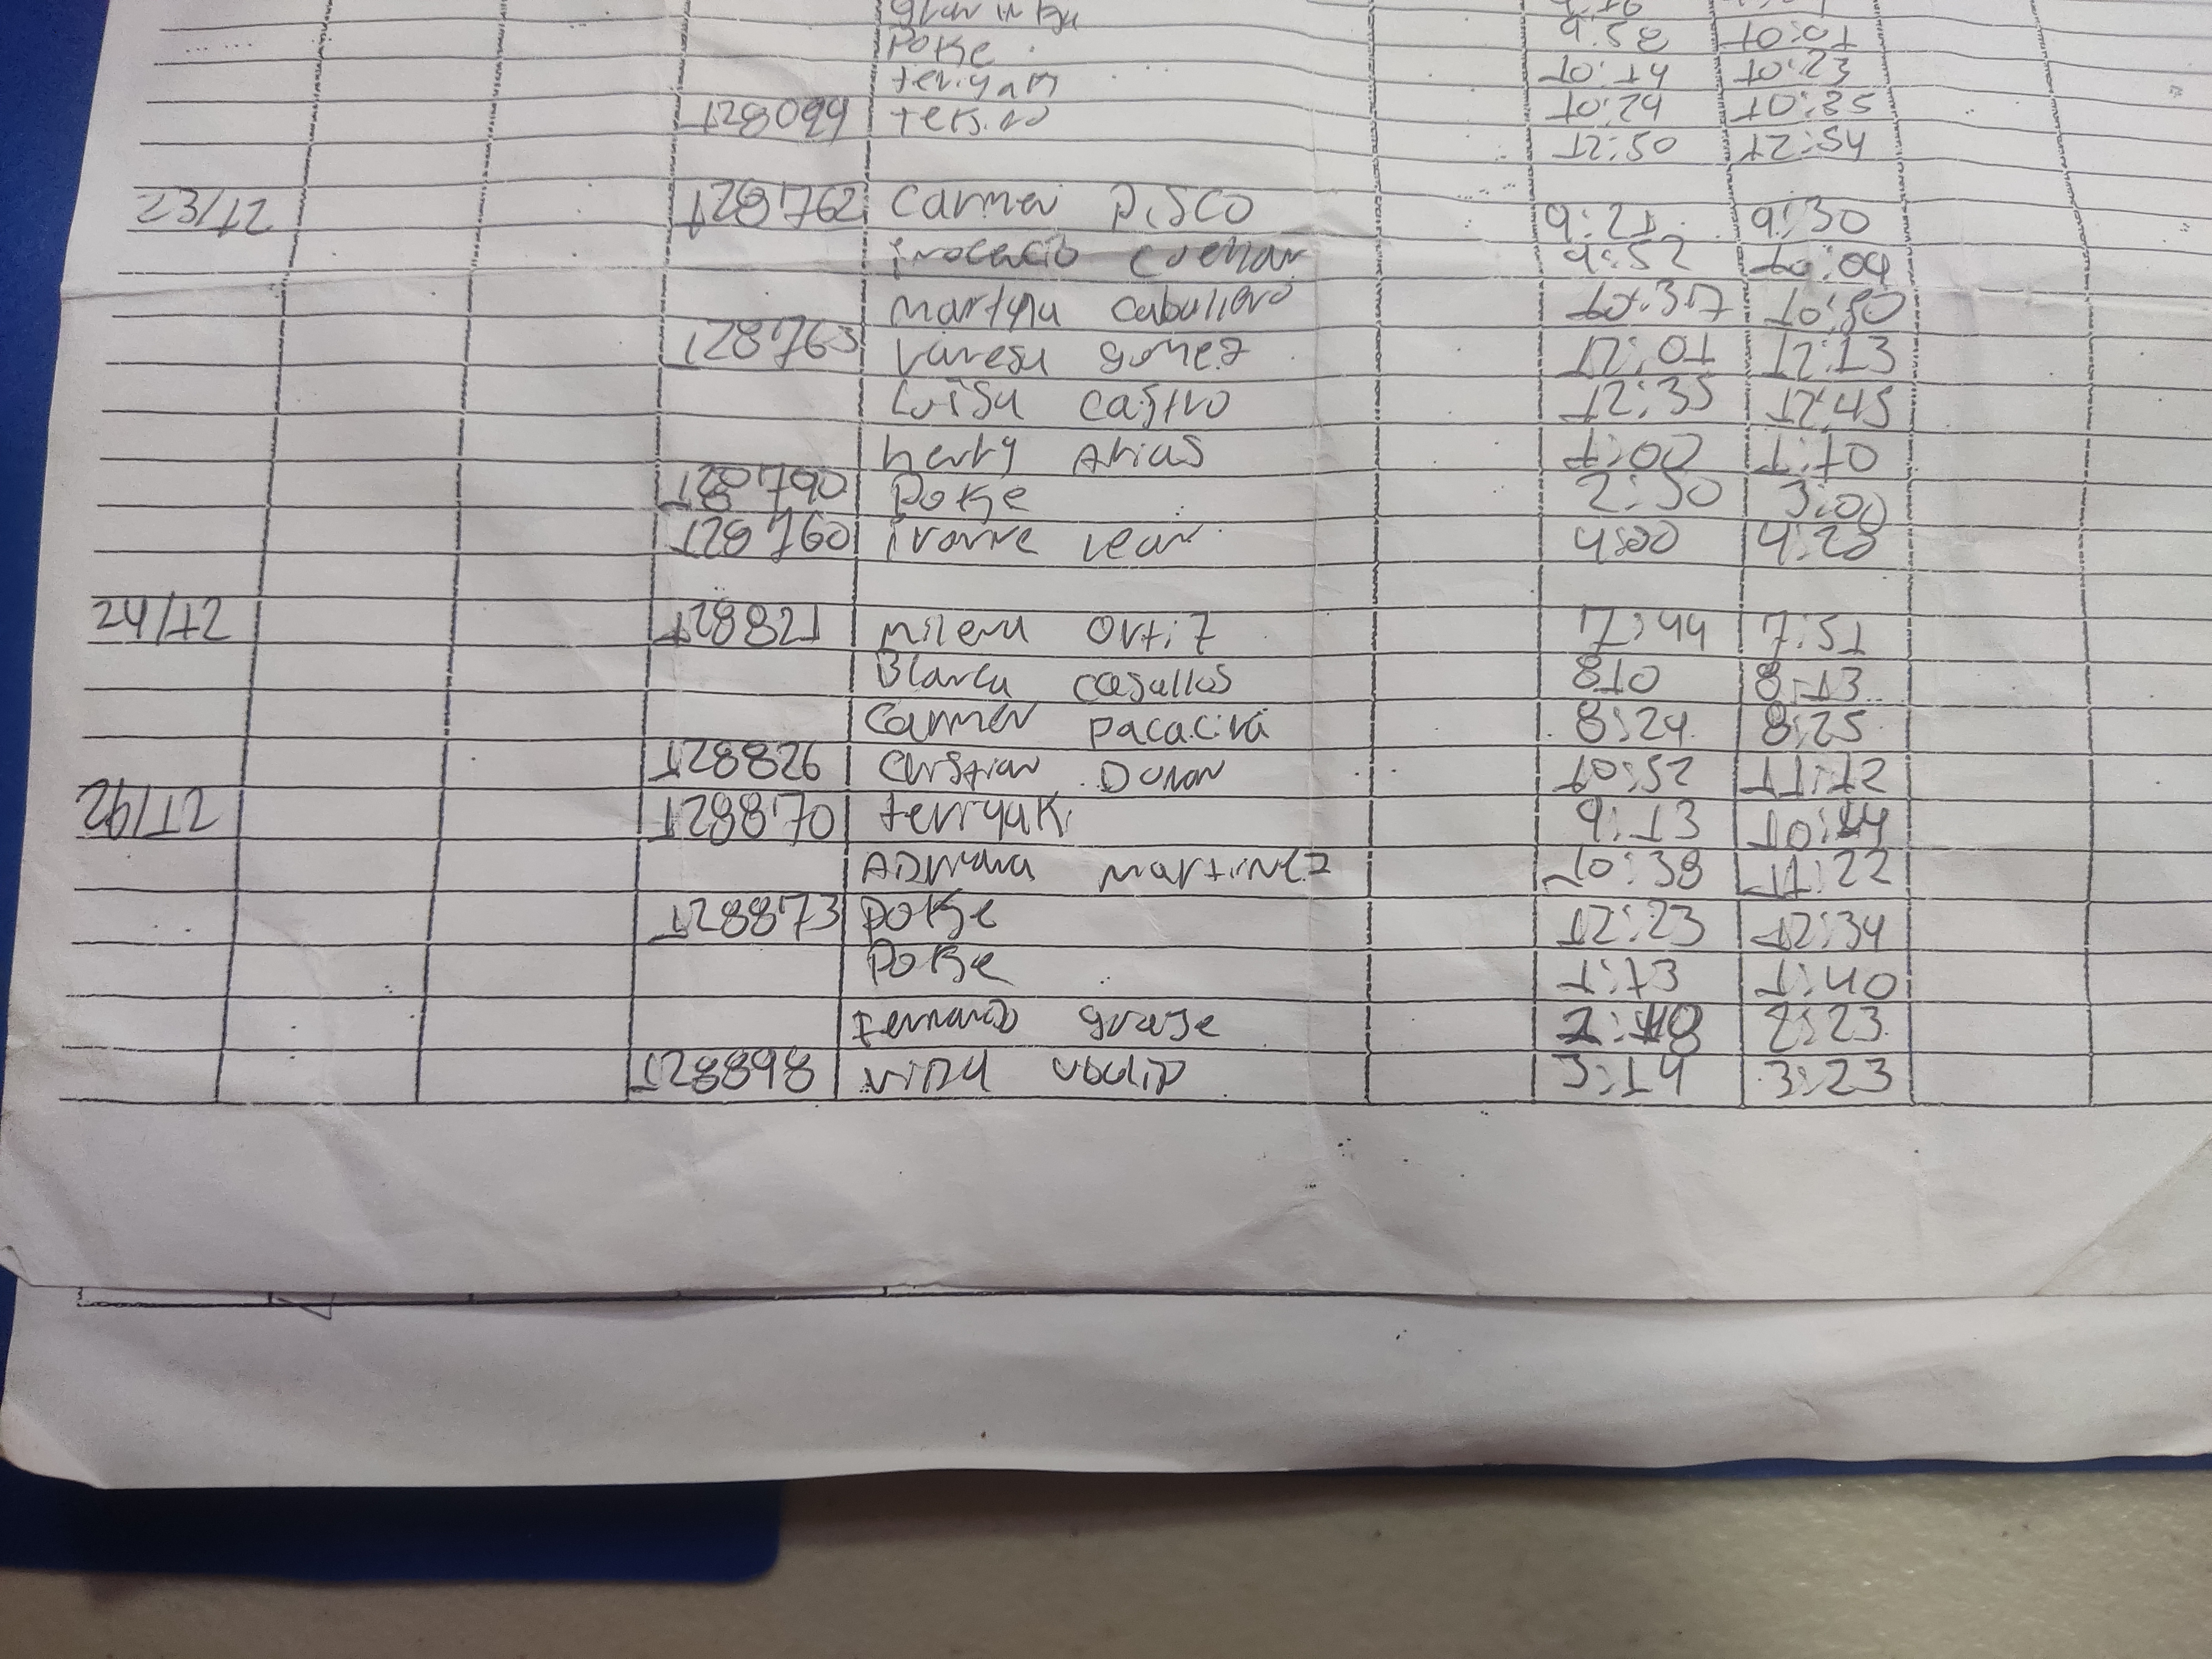 Poke 9:58 10:01
teriyaki 10:14 10:23
128099 10:24 10:35
12:50 12:54
23/12 128762 Carmen Pisco 9:21 9:30
inocencio cuellar 9:52 10:04
martha caballero 10:37 10:50
128763 Vanesa gomez 12:01 12:13
Luisa castro 12:35 12:45
herly Arias 1:00 1:10
128790 Poke 2:50 3:00
128760 ivonne lean 4:00 4:20
24/12 128821 milena Ortiz 7:44 7:51
Blanca casallas 810 8:13
Carmen pacaciva 8:24 8:25
128826 Cristian Duran 10:52 11:12
26/12 128870 terriyaki 9:13 10:14
ADriana martinez 10:38 11:22
128873 poke 12:23 12:34
Poke 1:13 1:40
fernando 2:23
128898 3:14 3:23